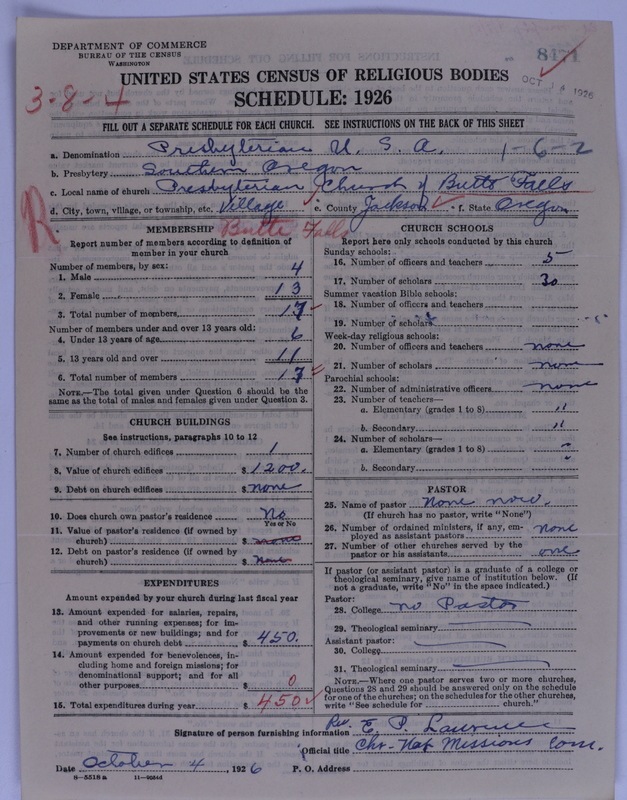 DEPARTMENT OF COMMERCE
BUREAU OF THE CENSUS
WASHINGTON
8471
OCT 1926
UNITED STATES CENSUS OF RELIGIOUS BODIES
3-8-4
SCHEDULE: 1926
FILL OUT A SEPARATE SCHEDULE FOR EACH CHURCH. SEE INSTRUCTIONS ON THE BACK OF THIS SHEET
a. Denomination Presbyterian U. S. A. 1-6-2
b. Presbytery Southern Oregon
c. Local name of church Presbyterian Church of Butte Falls
d. City, town, village, or township, etc. Village e. County Jackson f. State Oregon
R
Butte Falls
MEMBERSHIP
Report number of members according to definition of member in your church
Number of members, by sex:
1. Male 4
2. Female 13
3. Total number of members 17
Number of members under and over 13 years old:
4. Under 13 years of age 6
5. 13 years old and over 11
6. Total number of members 17
NOTE.—The total given under Question 6 should be
same as the total of males and females given under Question 3.
CHURCH BUILDINGS
See instructions, paragraphs 10 to 12
7. Number of church edifices 1
8. Value of church edifices $1200.
9. Debt on church edifices $none
10. Does church own pastor's residence No
Yes or No
11. Value of pastor's residence (if owned by
church) $ none
12. Debt on pastor's residence (if owned by
church) $ none
EXPENDITURES
Amount expended by your church during last fiscal year
13. Amount expended for salaries, repairs,
and other running expenses; for im-
provements or new buildings; and for
payments on church debt $450.
14. Amount expended for benevolences, in-
cluding home and foreign missions; for
denominational support; and for all
other purposes $ 0
15. Total expenditures during year $ 450
CHURCH SCHOOLS
Report here only schools conducted by this church
Sunday schools:
16. Number of officers and teachers 5
17. Number of scholars 30
Summer vacation Bible schools:
18. Number of officers and teachers
19. Number of scholars
Week-day religious schools:
20. Number of officers and teachers none
21. Number of scholars none
Parochial schools:
22. Number of administrative officers none
23. Number of teachers—
a. Elementary (grades 1 to 8) "
b. Secondary "
24. Number of scholars—
a. Elementary (grades 1 to 8) "
b. Secondary "
PASTOR
25. Name of pastor None now.
(If church has no pastor, write "None")
26. Number of ordained ministers, if any, em-
ployed as assistant pastors none
27. Number of other churches served by the
pastor or his assistants one
If pastor (or assistant pastor) is a graduate of a college or
theological seminary, give name of institution below. (If
not a graduate, write "No" in the space indicated.)
Pastor:
28. College no Pastor
29. Theological seminary
Assistant pastor:
30. College
31. Theological seminary
NOTE.—Where one pastor serves two or more churches,
Questions 28 and 29 should be answered only on the schedule
for one of the churches; on the schedules for the other churches,
write "See schedule for church."
Signature of person furnishing information Rev. E. P. Lawrence
Official title Chr. Nat Missions Com.
Date October 4, 1926 P. O. Address
8-5518a